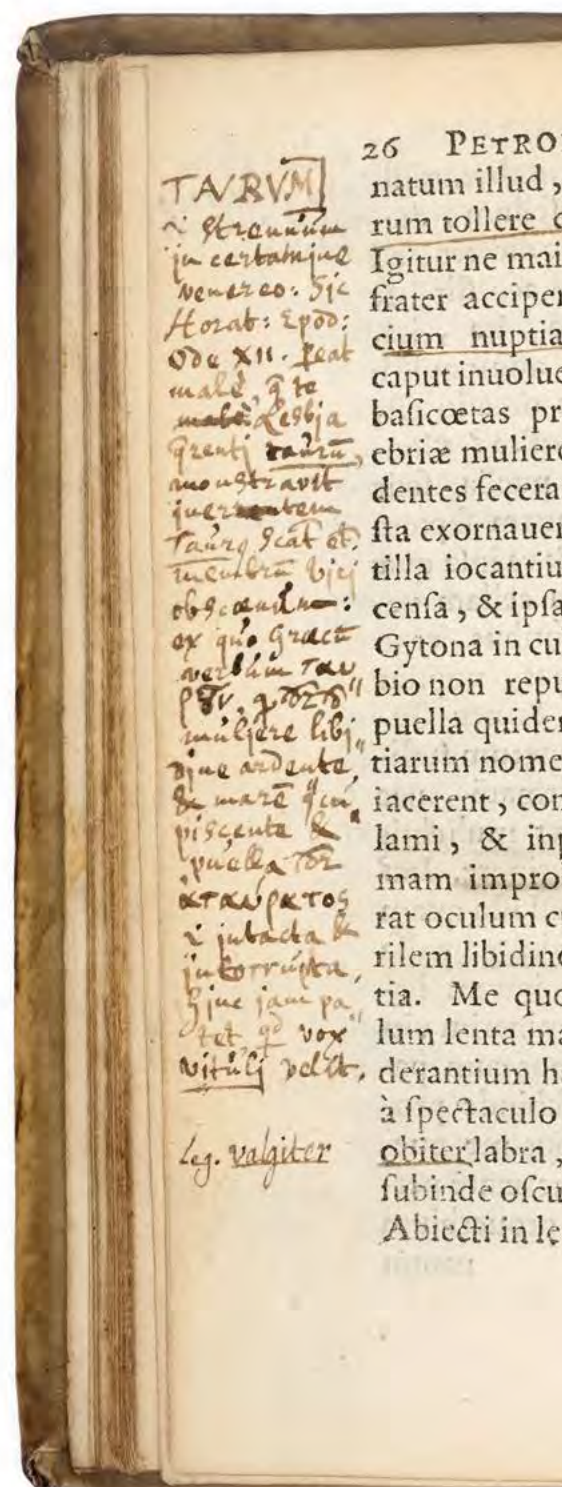 26 PETRO
natum illud,
rum tollere
Igitur ne mai
frater acciper
cium nuptia
caput inuolue
basicœtas pr
ebriæ muliere
dentes fecera
sta exornauer
tilla iocantiu
censa, & ipsa
Gytona in cu
bio non repu
puella quider
tiarum nome
iacerent, con
lami, & inp
mam impro
rat oculum c
rilem libidine
tia. Me quo
lum lenta ma
derantium h
à spectaculo
obiter labra,
subinde oscu
Abiecti in le
TAVRVM
strenuum
in certamine
venereo: Sic
Horat: Epod:
Ode XII. Peat
malè, q̃ te
malè Lesbia
q̃renti taurũ,
monstravit
inertem
Taurq Scat et
membrũ viri
obscœnum:
ex quo Græcũ
verbum ταυ
muliere libi
dine ardente,
& marẽ cu
piscente &
puella
ἀταύρωτος
intacta &
incorrupta,
Hinc jam pa
tet, qd vox
vituli velit.
Leg. valgiter